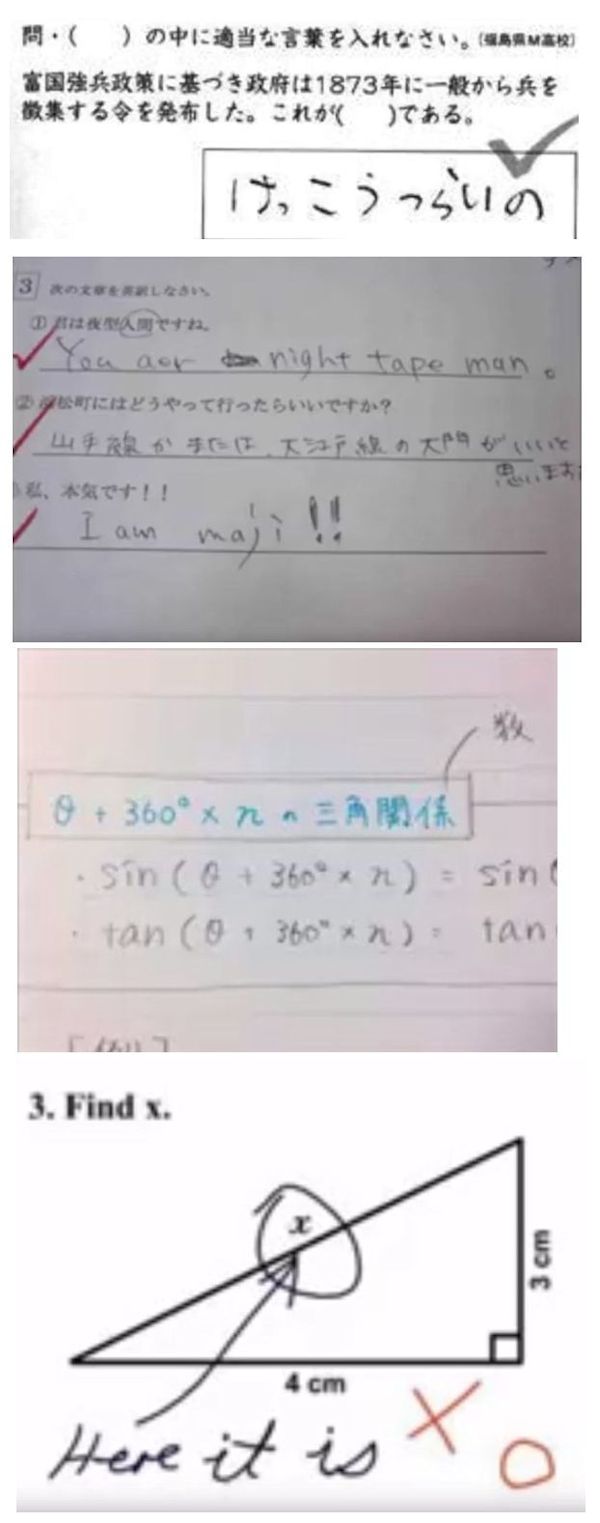 問・( )の中に適当な言葉を入れなさい。(福島県M高校)
富国強兵政策に基づき政府は1873年に一般から兵を
徴集する令を発布した。これが( )である。
けっこうつらいの
3 次の文章を英訳しなさい。
① 君は夜型人間ですね。
You aer night tape man。
② 浜松町にはどうやって行ったらいいですか?
山手線か または、大江戸線の大門がいいと
思います
私、本気です!!
I am maji!!
数
θ + 360° × n の三角関係
・sin(θ + 360° × n) = sin(
・tan(θ + 360° × n) = tan
[例]
3. Find x.
x
3 cm
4 cm
Here it is